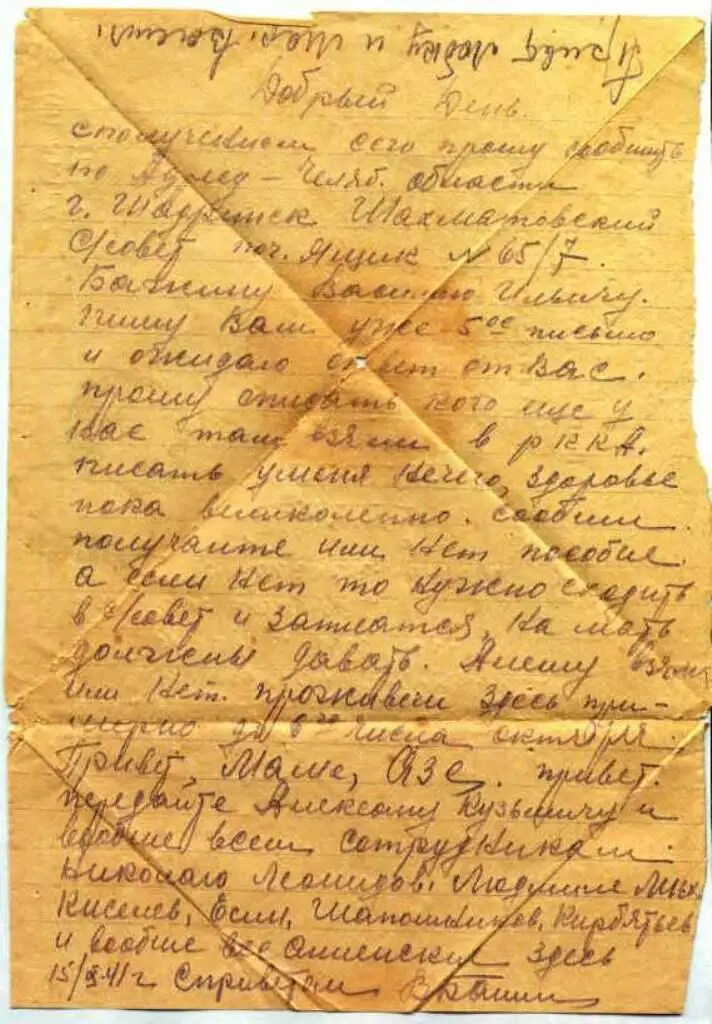 Привет Любку и Мар. Васил.
Добрый День.
сполучением сего прошу сообщить
по Адресу - Челяб. области
г. Шадринск Шахматовский
С/совет поч. Ящик № 65/7.
Бажину Василию Ильичу.
пишу Вам уже 5ое письмо
и ожидаю ответ от Вас.
прошу описать кого еще у
вас там взяли в РККА.
писать уменя нечего, здоровье
пока великолепно. сообщи
получаите или нет пособие.
а если нет то нужно сходить
в С/совет и На мать
должны давать. взяли
или нет. проживем здесь при-
мерно до 6го числа октября.
Привет, Маме, Азе. привет.
передайте Алексею Кузьмичу и
вообще всем сотрудникам
Николаю Леонидов. Людмиле Мих.
Киселев, Если, Шапошников, Кирбятьев
и вообще все здесь
15/9-41г Сприветом